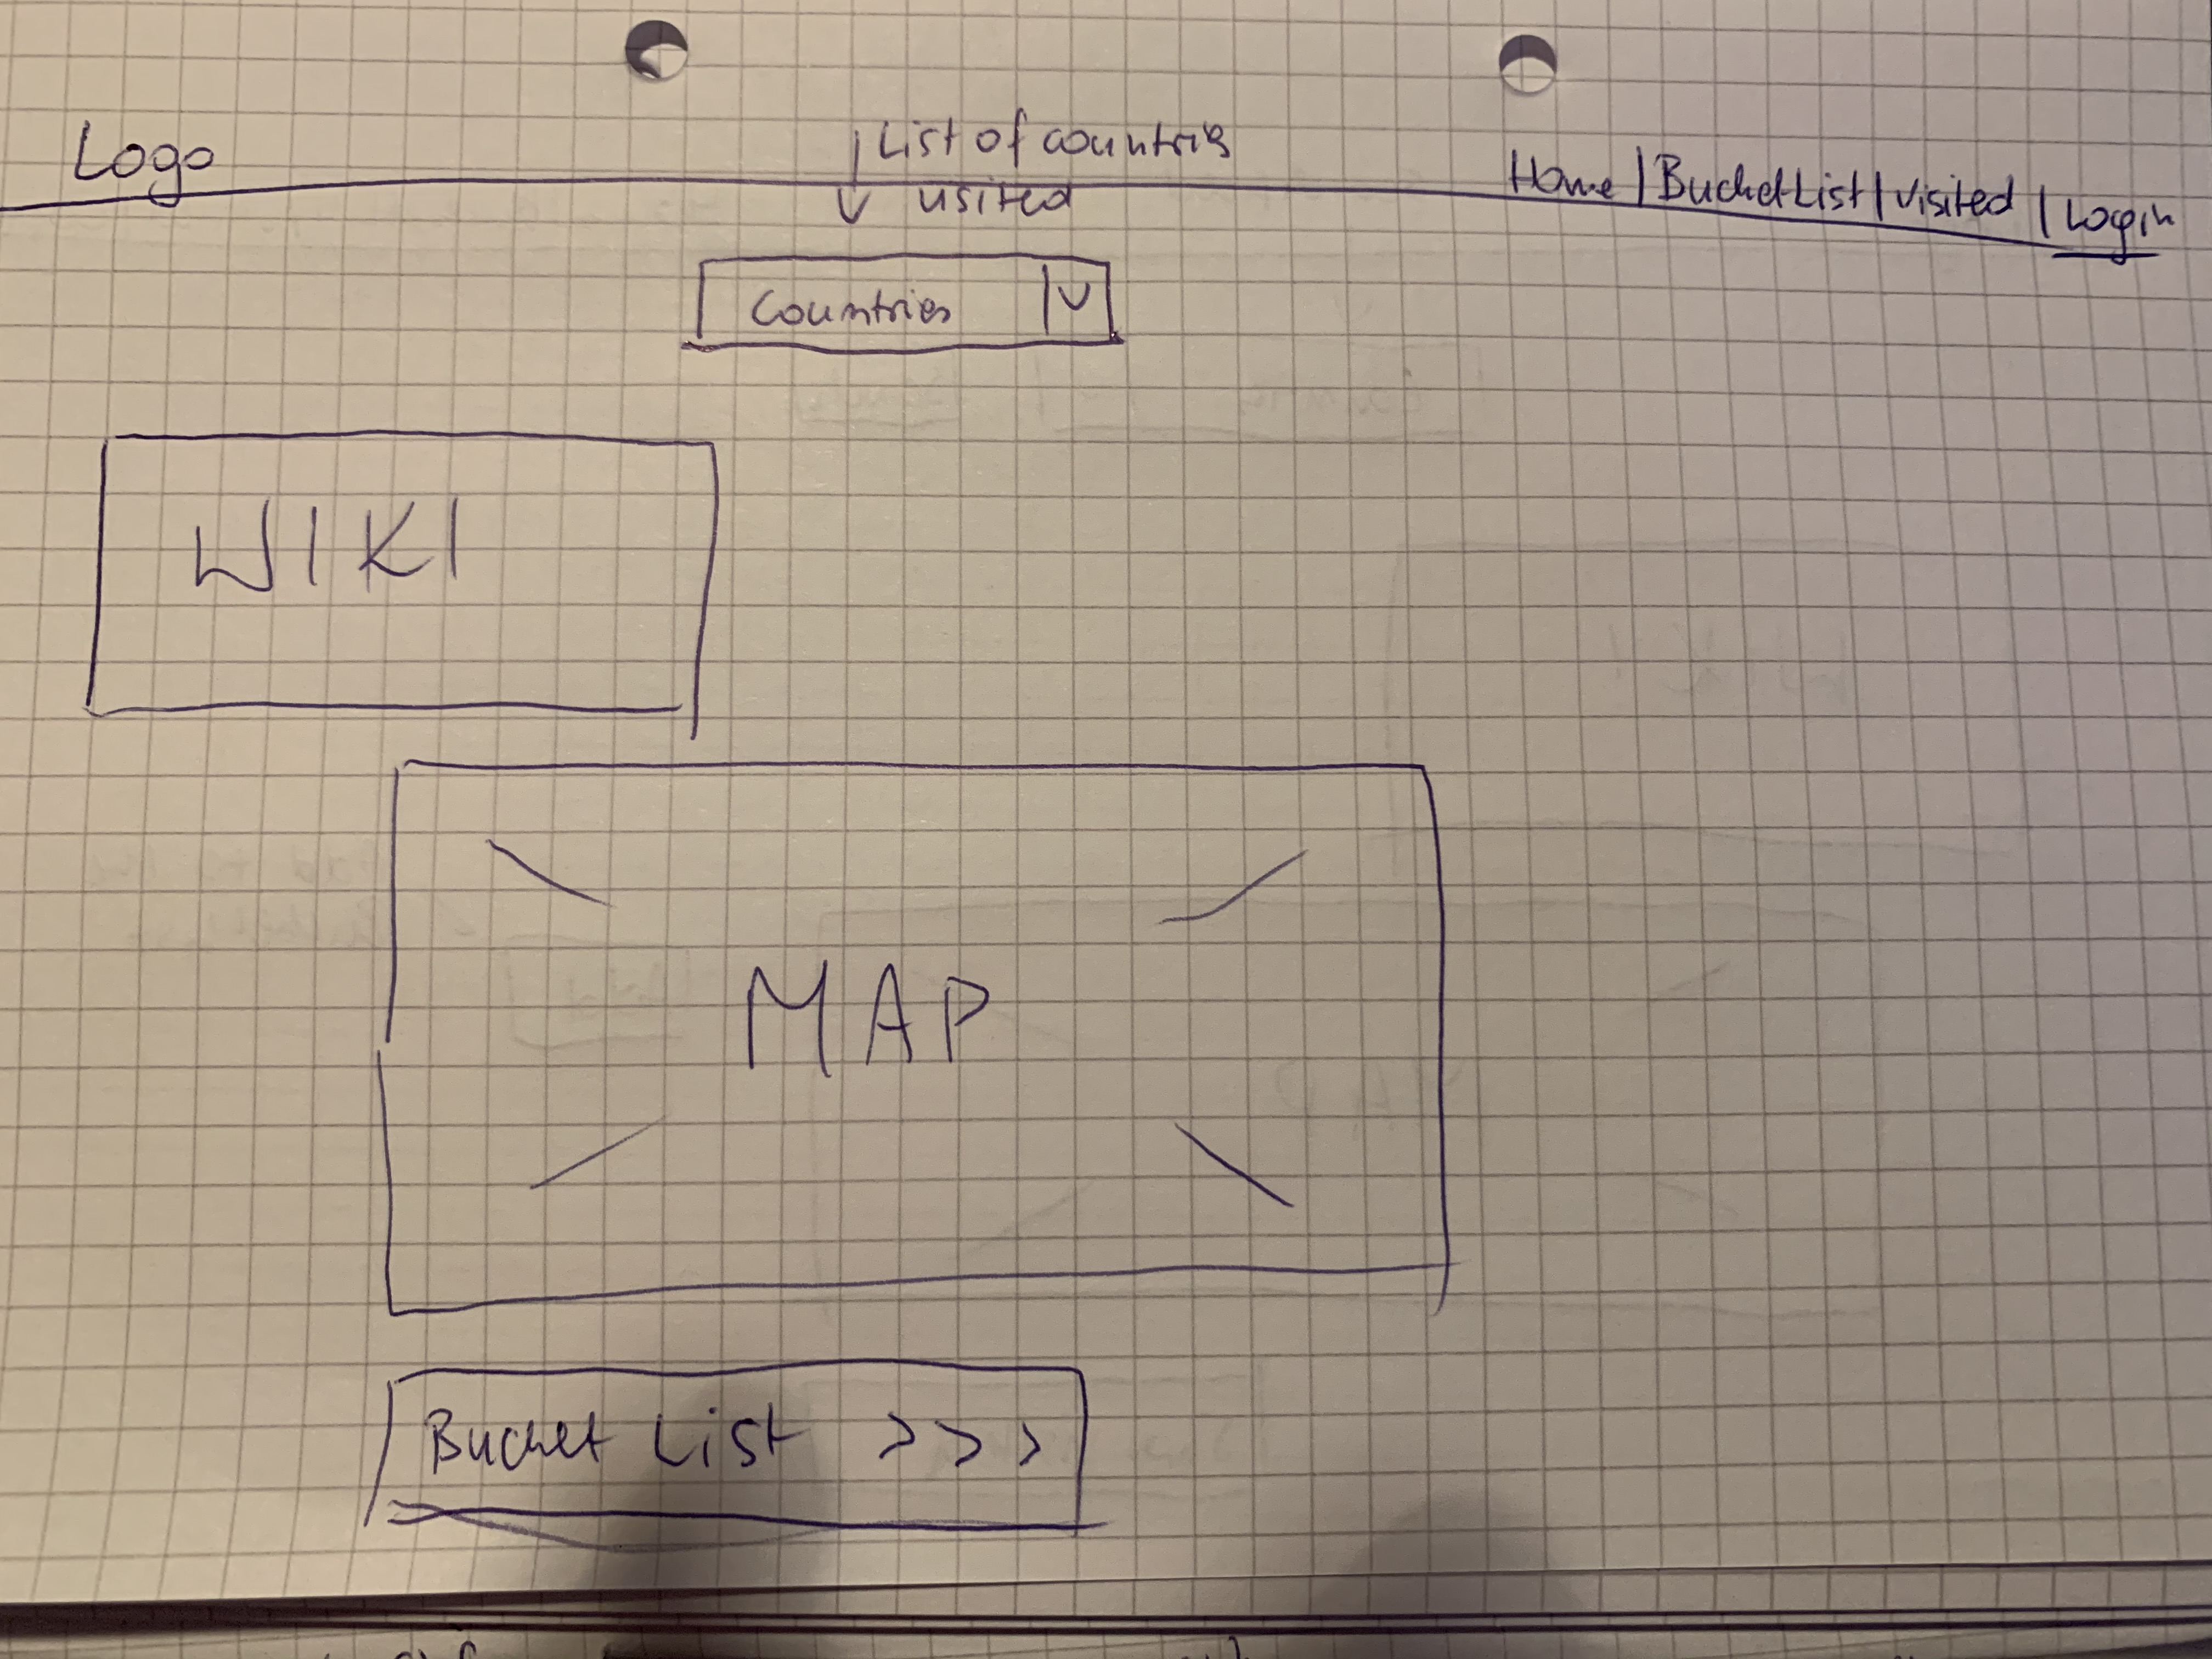 Logo
List of countries
visited
Home | Bucketlist | Visited | Login
Countries
WIKI
MAP
Bucket List >>>